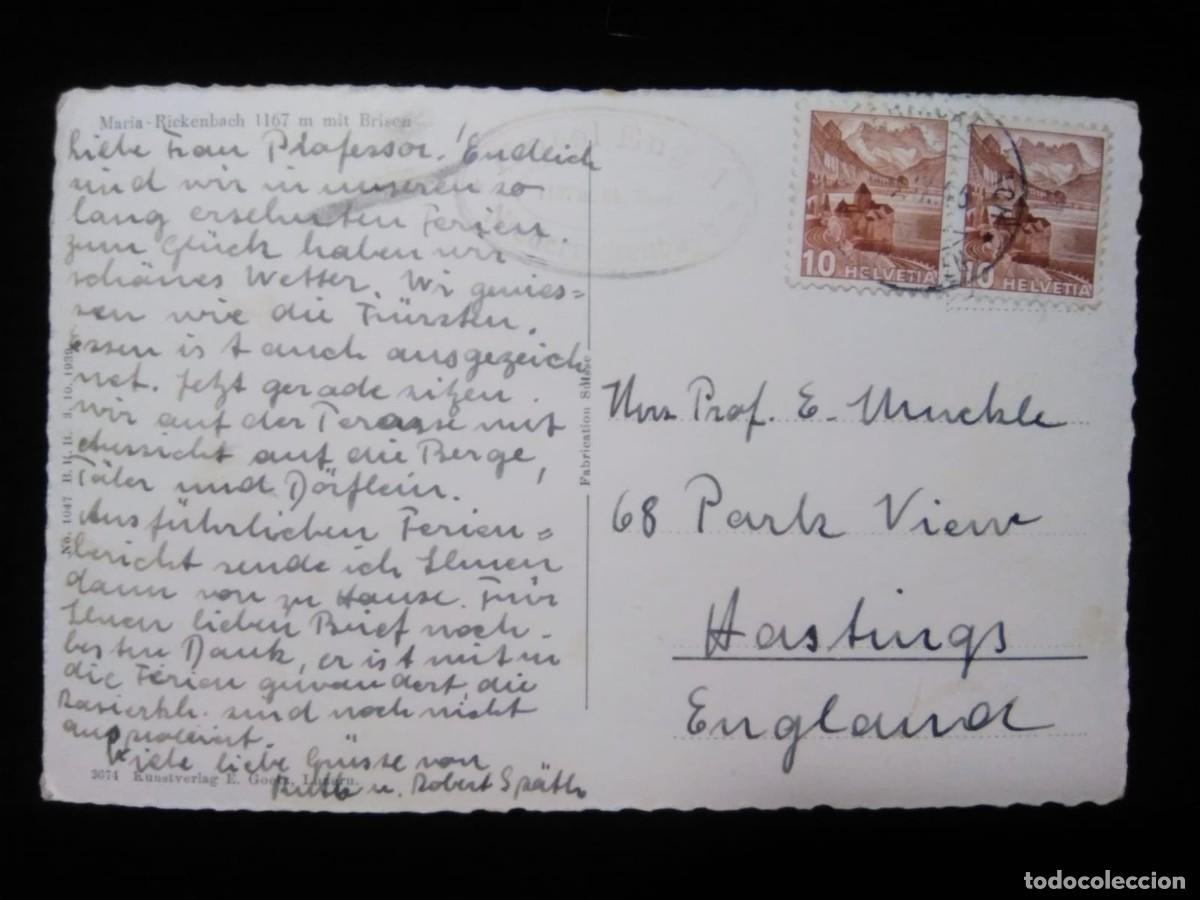 Maria-Rickenbach 1167 m mit Brisen
Liebe Frau Professor! Endlich
sind wir in unseren so
lang ersehnten Ferien.
zum Glück haben wir
schönes Wetter. Wir genies=
sen wie die Fürsten.
Essen ist auch ausgezeich
net. Jetzt gerade sitzen
wir auf der Terasse mit
Aussicht auf die Berge,
Täler und Dörflein.
Ausführlichen Ferien=
bericht sende ich Ihnen
dann von zu Hause. Für
Ihren lieben Brief noch
besten Dank, er ist mit in
die Ferien gewandert, die
Rasierkl. sind noch nicht
Viele liebe Grüsse von
Ruth u. Robert Späth
3674 Kunstverlag E. Goetz, Luzern.
No. 1047 B. R. B. 3. 10. 1939
Fabrication Suisse
10 HELVETIA
10
Herr Prof. E. Muckle
68 Park View
Hastings
England
todocoleccion